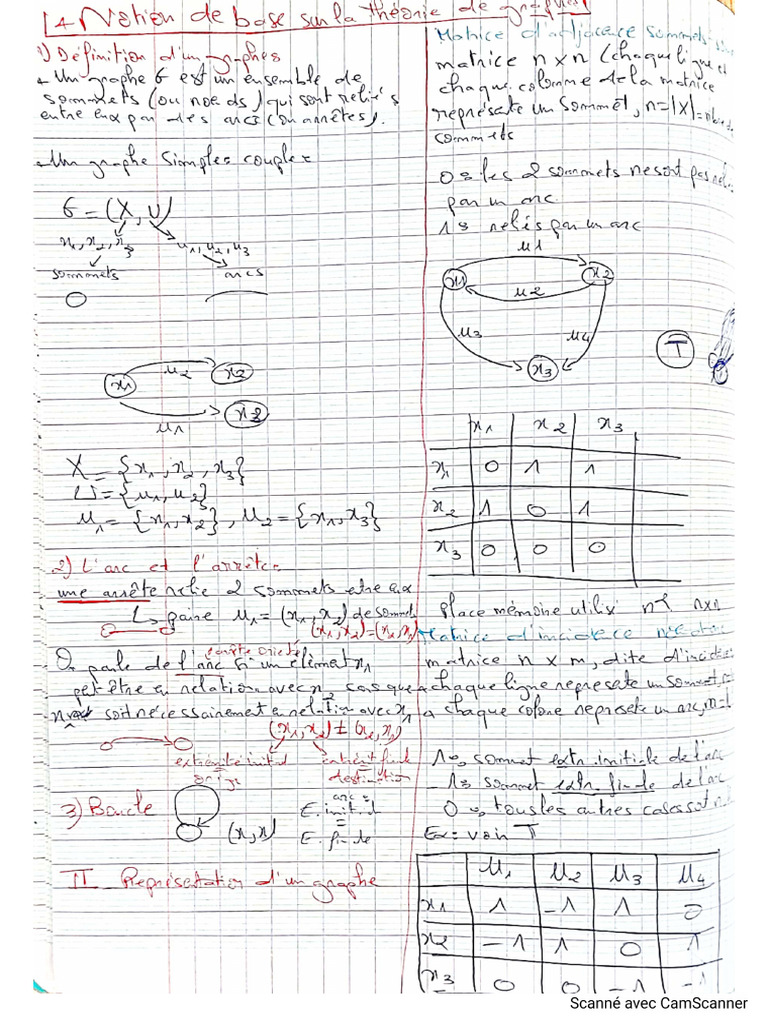 1 Notion de base sur la théorie de graphes
1) Définition d'un graphes
Un graphe G est un ensemble de
sommets (ou noeds) qui sont reliés
entre eux par des arcs (ou arrêtes).
Un graphe simples couple
G = (X, U)
x1, x2, x3
u1, u2, u3
sommets
arcs
x1
u2
x2
u1
x3
X = {x1, x2, x3}
U = {u1, u2}
u1 = {x1, x2}, u2 = {x1, x3}
2) L'arc et l'arrête
une arrête relie 2 sommets etre eux
paire u1 = (x1, x2) de sommets
On parle de l'arc si un élémet x1
peut être en relation avec x2 sas que
soit nécessairement en relation avec x1
(x1, x2) ≠ (x2, x1)
extrémité initial
destination
3) Boucle
(x, x)
arc =
E. initial
=
E. finale
II Représentation d'un graphe
Matrice d'adjacence sommets
matrice n x n (chaque ligne et
chaque colomme de la matrice
représete un sommet, n = |X| =
sommets
0 : les 2 sommets ne sont pas
par un arc.
1 : reliés par un arc
u1
x1
x2
u2
u3
u4
x3
T
x1 x2 x3
x1 0 1 1
x2 1 0 1
x3 0 0 0
Place mémoire utilisé n² nxn
Matrice d'incidence
matrice n x m, dite d'
chaque ligne represete un sommet
chaque colone represete un arc,
1 : sommet extr. initiale de l'arc
-1 : sommet extr finale de l'arc
0 : tous les autres cases
Ex : voir T
u1 u2 u3 u4
x1 1 -1 1 0
x2 -1 1 0 1
x3 0 0 -1 -1
Scanné avec CamScanner